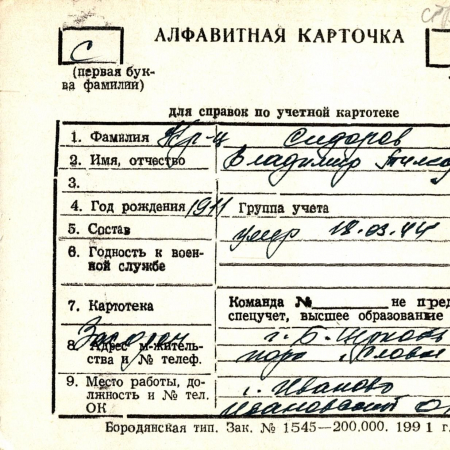 С
АЛФАВИТНАЯ КАРТОЧКА
(первая бук-
ва фамилии)
для справок по учетной картотеке
1. Фамилия Кр-ц Сидоров
2. Имя, отчество Владимир
3.
4. Год рождения 1911 Группа учета
5. Состав умер 18.03.44
6. Годность к воен-
ной службе
7. Картотека Команда № не пред
спецучет, высшее образование
8. Адрес м-жительст-
ва и № телеф. г. Б. Церковь
9. Место работы, до- г. Иваново
лжность и № тел.
ОК Ивановской
Бородянская тип. Зак. № 1545—200,000. 1991 г.